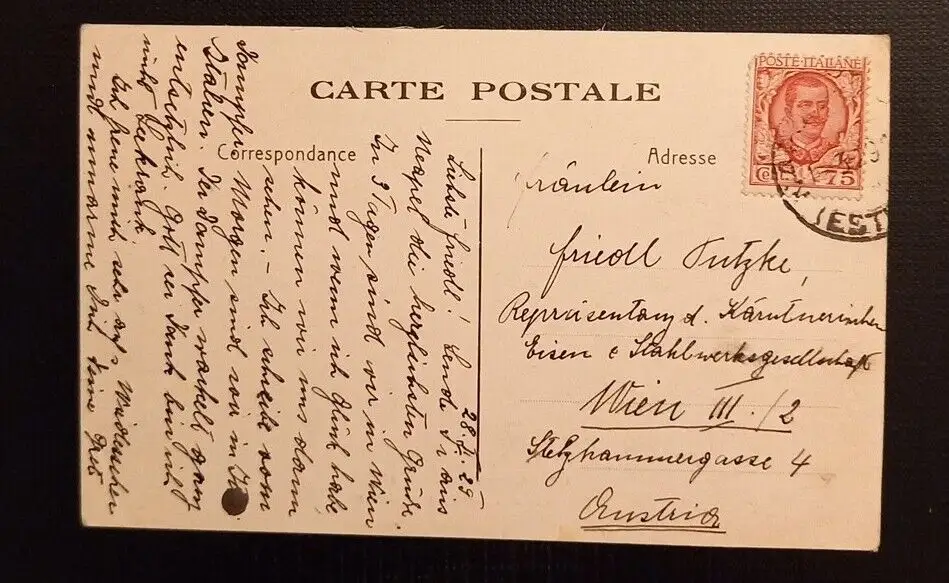 CARTE POSTALE
Correspondance
Adresse
POSTE ITALIANE
75
Fräulein
Friedl Putzke,
Repräsentanz d. Kärntnerischen
Eisen & Stahlwerksgesellschaft
Wien III./2
Stelzhammergasse 4
Austria
28. 29.
Liebste Friedl! Sende Dir aus
Neapel die herzlichsten Grüsse.
In 3 Tagen sind wir in Wien
und wenn ich Glück habe
können wir uns dann
sehen. – Ich schreibe vom
Dampfer. Morgen sind wir in
Italien. Der Dampfer wackelt ganz
entsetzlich. Gott sei Dank bin ich
nicht seekrank
Ich freue mich sehr auf's Wiedersehen
und umarme Dich Deine